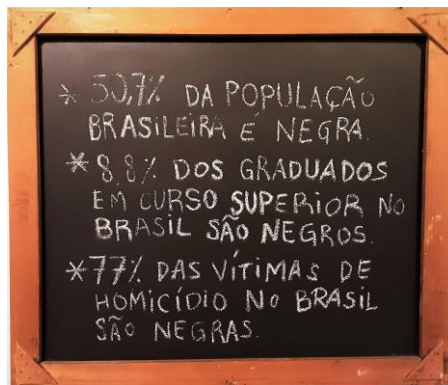 * 50,7% DA POPULAÇÃO
BRASILEIRA É NEGRA.
* 8,8% DOS GRADUADOS
EM CURSO SUPERIOR NO
BRASIL SÃO NEGROS.
* 77% DAS VÍTIMAS DE
HOMICÍDIO NO BRASIL
SÃO NEGRAS.